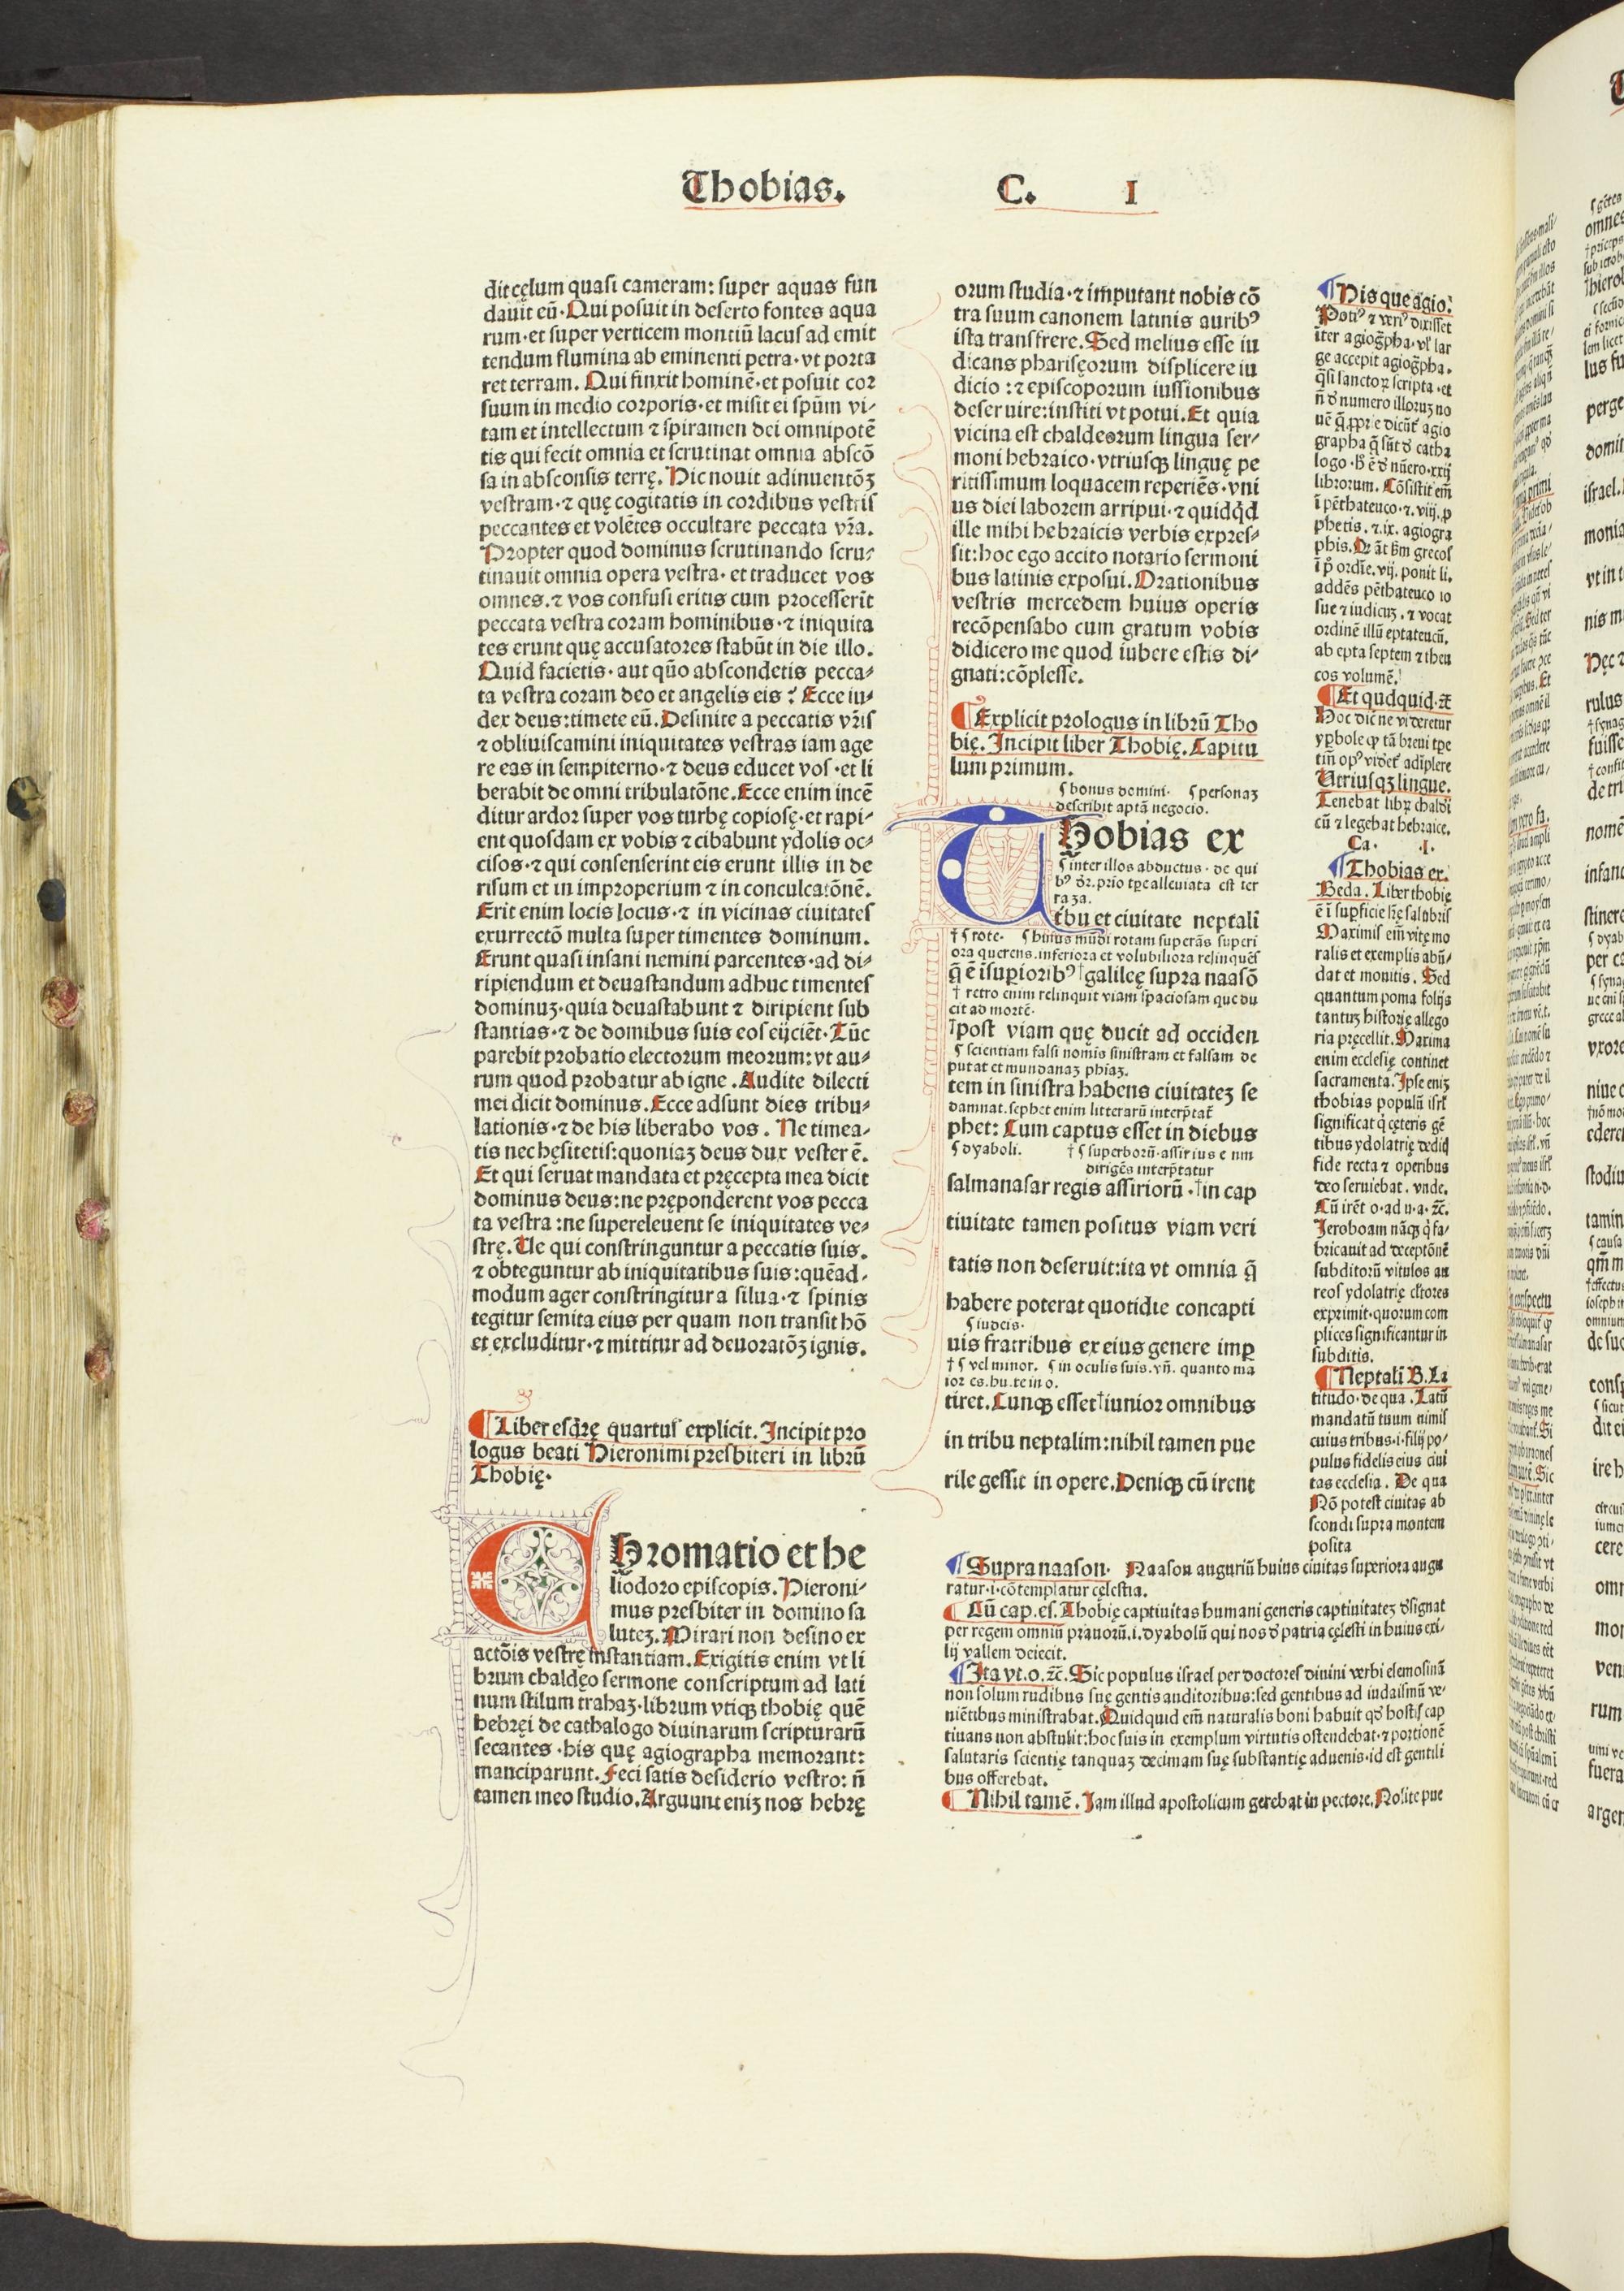 Thobias. C. I
dit cęlum quasi cameram: super aquas fun
dauit eū. Qui posuit in deserto fontes aqua
rum·et super verticem montiū lacus ad emit
tendum flumina ab eminenti petra·vt porta
ret terram. Qui finxit hominē·et posuit cor
suum in medio corporis·et misit ei spūm vi-
tam et intellectum ⁊ spiramen dei omnipotē
tis qui fecit omnia et scrutinat omnia abscō
sa in absconsis terrę. Hic nouit adinuentōꝫ
vestram·⁊ quę cogitatis in cordibus vestris
peccantes et volētes occultare peccata vr̄a.
Propter quod dominus scrutinando scru-
tinauit omnia opera vestra·et traducet vos
omnes.⁊ vos confusi eritis cum processerīt
peccata vestra coram hominibus·⁊ iniquita
tes erunt quę accusatores stabūt in die illo.
Quid facietis·aut qūo abscondetis pecca-
ta vestra coram deo et angelis eis? Ecce iu-
dex deus:timete eū. Desinite a peccatis vr̄is
⁊ obliuiscamini iniquitates vestras iam age
re eas in sempiterno·⁊ deus educet vos·et li
berabit de omni tribulatōne. Ecce enim incē
ditur ardor super vos turbę copiosę·et rapi-
ent quosdam ex vobis ⁊ cibabunt ydolis oc-
cisos·⁊ qui consenserint eis erunt illis in de
risum et in improperium ⁊ in conculcatōnē.
Erit enim locis locus·⁊ in vicinas ciuitates
exurrectō multa super timentes dominum.
Erunt quasi insani nemini parcentes·ad di-
ripiendum et deuastandum adhuc timentes
dominuꝫ·quia deuastabunt ⁊ diripient sub
stantias·⁊ de domibus suis eos eijciēt. Tūc
parebit probatio electorum meorum:vt au-
rum quod probatur ab igne. Audite dilecti
mei dicit dominus. Ecce adsunt dies tribu-
lationis·⁊ de his liberabo vos. Ne timea-
tis nec hęsitetis:quoniaꝫ deus dux vester ē.
Et qui seruat mandata et pręcepta mea dicit
dominus deus:ne pręponderent vos pecca
ta vestra:ne supereleuent se iniquitates ve-
strę. Ue qui constringuntur a peccatis suis.
⁊ obteguntur ab iniquitatibus suis:quēad-
modum ager constringitur a silua·⁊ spinis
tegitur semita eius per quam non transit hō
et excluditur·⁊ mittitur ad deuoratōꝫ ignis.
¶ Liber esdrę quartus explicit. Incipit pro
logus beati Hieronimi presbiteri in librū
Thobię.
CHromatio et he
liodoro episcopis. Hieroni-
mus presbiter in domino sa
luteꝫ. Mirari non desino ex
actōis vestrę instantiam. Exigitis enim vt li
brum chaldęo sermone conscriptum ad lati
num stilum trahaꝫ·librum vtiqꝫ thobię quē
hebręi de cathalogo diuinarum scripturarū
secantes·his quę agiographa memorant:
manciparunt. Feci satis desiderio vestro: ñ
tamen meo studio. Arguunt eniꝫ nos hebrę
orum studia·⁊ imputant nobis cō
tra suum canonem latinis auribꝰ
ista transfrere. Sed melius esse iu
dicans phariseęorum displicere iu
dicio:⁊ episcoporum iussionibus
deseruire:institi vt potui. Et quia
vicina est chaldeorum lingua ser-
moni hebraico·vtriusqꝫ linguę pe
ritissimum loquacem reperiēs·vni
us diei laborem arripui·⁊ quidq̄d
ille mihi hebraicis verbis expres-
sit:hoc ego accito notario sermoni
bus latinis exposui. Orationibus
vestris mercedem huius operis
recōpensabo cum gratum vobis
didicero me quod iubere estis di-
gnati:cōplesse.
¶ Explicit prologus in librū Tho
bię. Incipit liber Thobię. Capitu
lum primum.
bonus domini. personaꝫ
describit aptā negocio.
THobias ex
inter illos abductus·de qui
bꝰ dr̄. prīo tp̄e alleuiata est ter
ra za.
tribu et ciuitate neptali
† rote. huius mūdi rotam superās superi
ora querens.inferiora et volubiliora relinquēs
q̄ ē ī superioribꝰ †galileę supra naasō
† retro enim relinquit viam spaciosam que du
cit ad mortē.
†post viam quę ducit ad occiden
scientiam falsi nomīs sinistram et falsam de
putat et mundanaꝫ phiaꝫ.
tem in sinistra habens ciuitateꝫ se
damnat.sephet enim litterarū interp̄tat̄
phet: Cum captus esset in diebus
dyaboli. † superborū·assirius enim
dirigēs interp̄tatur
salmanasar regis assiriorū·†in cap
tiuitate tamen positus viam veri
tatis non deseruit:ita vt omnia q̄
habere poterat quotidie concapti
iudeis.
uis fratribus ex eius genere imꝑ
† vel minor. in oculis suis.vñ. quanto ma
ior es.hu.te in o.
tiret. Cunqꝫ esset †iunior omnibus
in tribu neptalim:nihil tamen pue
rile gessit in opere. Deniqꝫ cū irent
¶ His que agio.
Potiꝰ ⁊ veriꝰ dixisset
īter agiogͣpha·vl' lar
ge accepit agiogͣpha·
q̄si sanctoꝝ scripta·et
ñ ď numero illoruꝫ no
grapha q̄ sūt ď catha
logo·h̄ ē ď nūero·xxij
librorum. Cōsistit em̄
ī pēthateuco·⁊.viij.ꝓ
phetis.⁊.ix.agiogra
phis.
ī p̄ ordīe.vij.ponit li.
addēs pēthateuco io
sue ⁊ iudicuꝫ.⁊ vocat
ordinē illū eptateucū.
ab epta septem ⁊ theu
cos volumē.
¶ Et qudquid.⁊c̄
Hoc dic̄ ne videretur
yꝑbole qꝫ tā breui tp̄e
tm̄ opꝰ vide't adīplere
Utriusqꝫ lingue.
Tenebat libꝝ chaldi
cū ⁊ legebat hebraice.
Ca. .I.
¶ Thobias ex.
Beda. Liber thobię
ē ī suꝑficie lr̄ę salubris
Maximis eim̄ vitę mo
ralis et exemplis abū-
dat et monitis. Sed
quantum poma folijs
tantuꝫ historię allego
ria pręcellit. Maxima
enim ecclesię continet
sacramenta. Ipse eniꝫ
thobias populū isrl'
significat q̇ cęteris gē
tibus ydolatrię deditꝭ
fide recta ⁊ operibus
deo seruiebat. vnde.
Cū irēt o·ad u·a·⁊c̄.
Jeroboam nāqꝫ q̇ fa-
bricauit ad deceptōnē
subditorū vitulos au
reos ydolatrię
exprimit·quorum com
plices significantur in
subditis.
¶ Neptali B. La
titudo·de qua. Latū
mandatū tuum nimis
cuius tribus·i·filij po-
pulus fidelis eius ciui
tas ecclesia. De qua
Nō potest ciuitas ab
scondi supra montem
posita
¶ Supra naason. Naason auguriū huius ciuitas superiora augu
ratur·i·cōtemplatur cęlestia.
¶ Cū cap.es. Thobię captiuitas humani generis captiuitateꝫ ďsignat
per regem omniū prauorū.i.dyabolū qui nos ď patria cęlesti in huius exi-
lij vallem deiecit.
¶ Ita vt.o.⁊c̄. Sic populus israel per doctores diuini verbi elemosinā
non solum rudibus suę gentis auditoribus:sed gentibus ad iudaismū ve-
niētibus ministrabat. Quidquid em̄ naturalis boni habuit qď hostis cap
tiuans non abstulit:hoc suis in exemplum virtutis ostendebat·⁊ portionē
salutaris scientię tanquaꝫ decimam suę substantię aduenis·id est gentili
bus offerebat.
¶ Nihil tamē. Jam illud apostolicum gerebat in pectore. Nolite pue